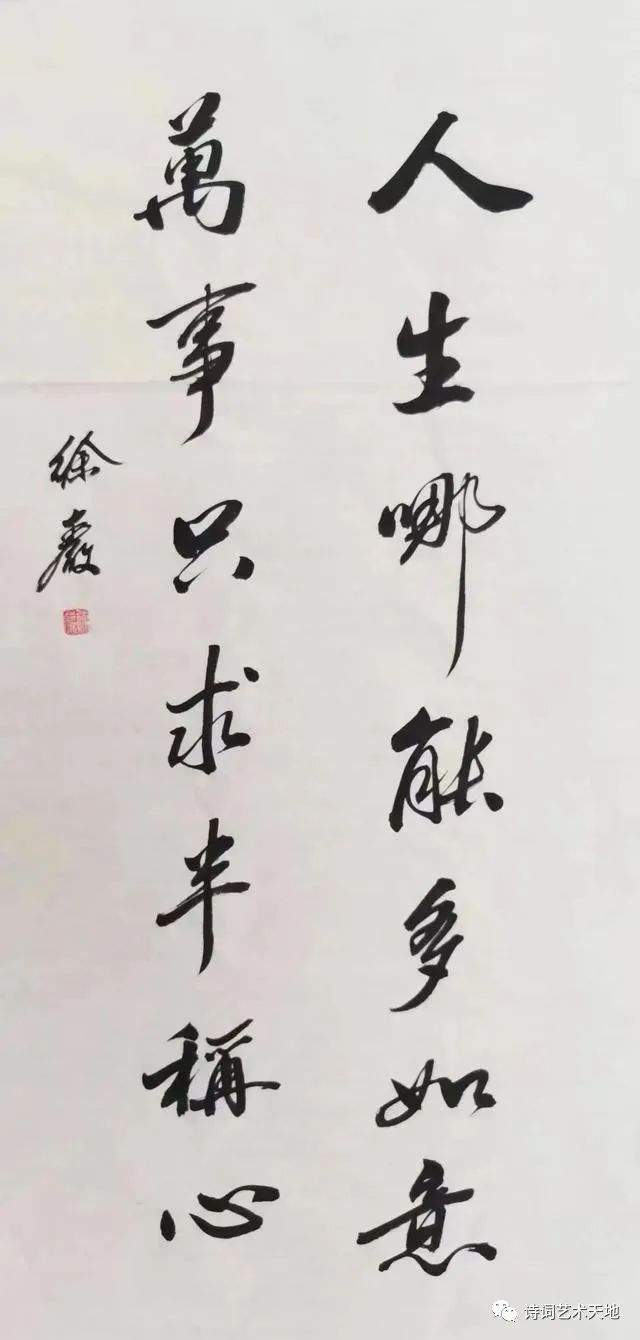 人生哪能多如意
萬事只求半稱心
徐
诗词艺术天地